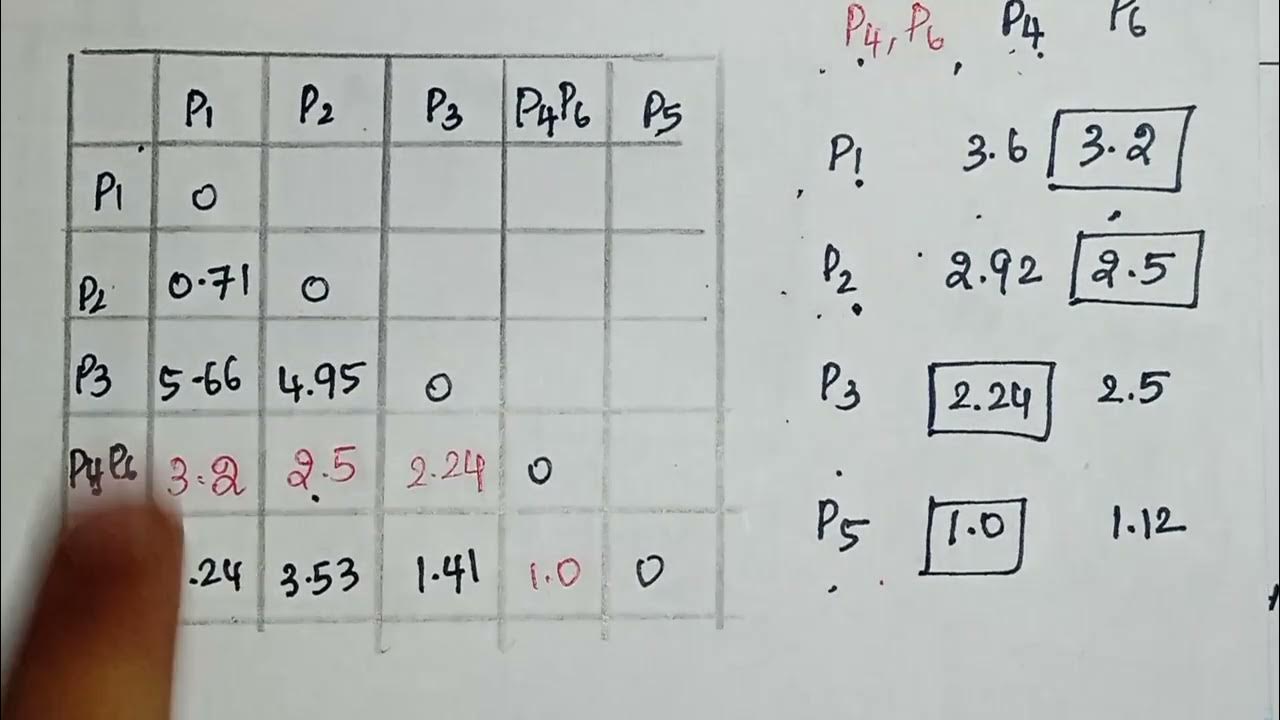 P4, P6, P4 P6
P1 P2 P3 P4P6 P5
P1 0
P2 0.71 0
P3 5.66 4.95 0
P4P6 3.2 2.5 2.24 0
.24 3.53 1.41 1.0 0
P1 3.6 3.2
P2 2.92 2.5
P3 2.24 2.5
P5 1.0 1.12